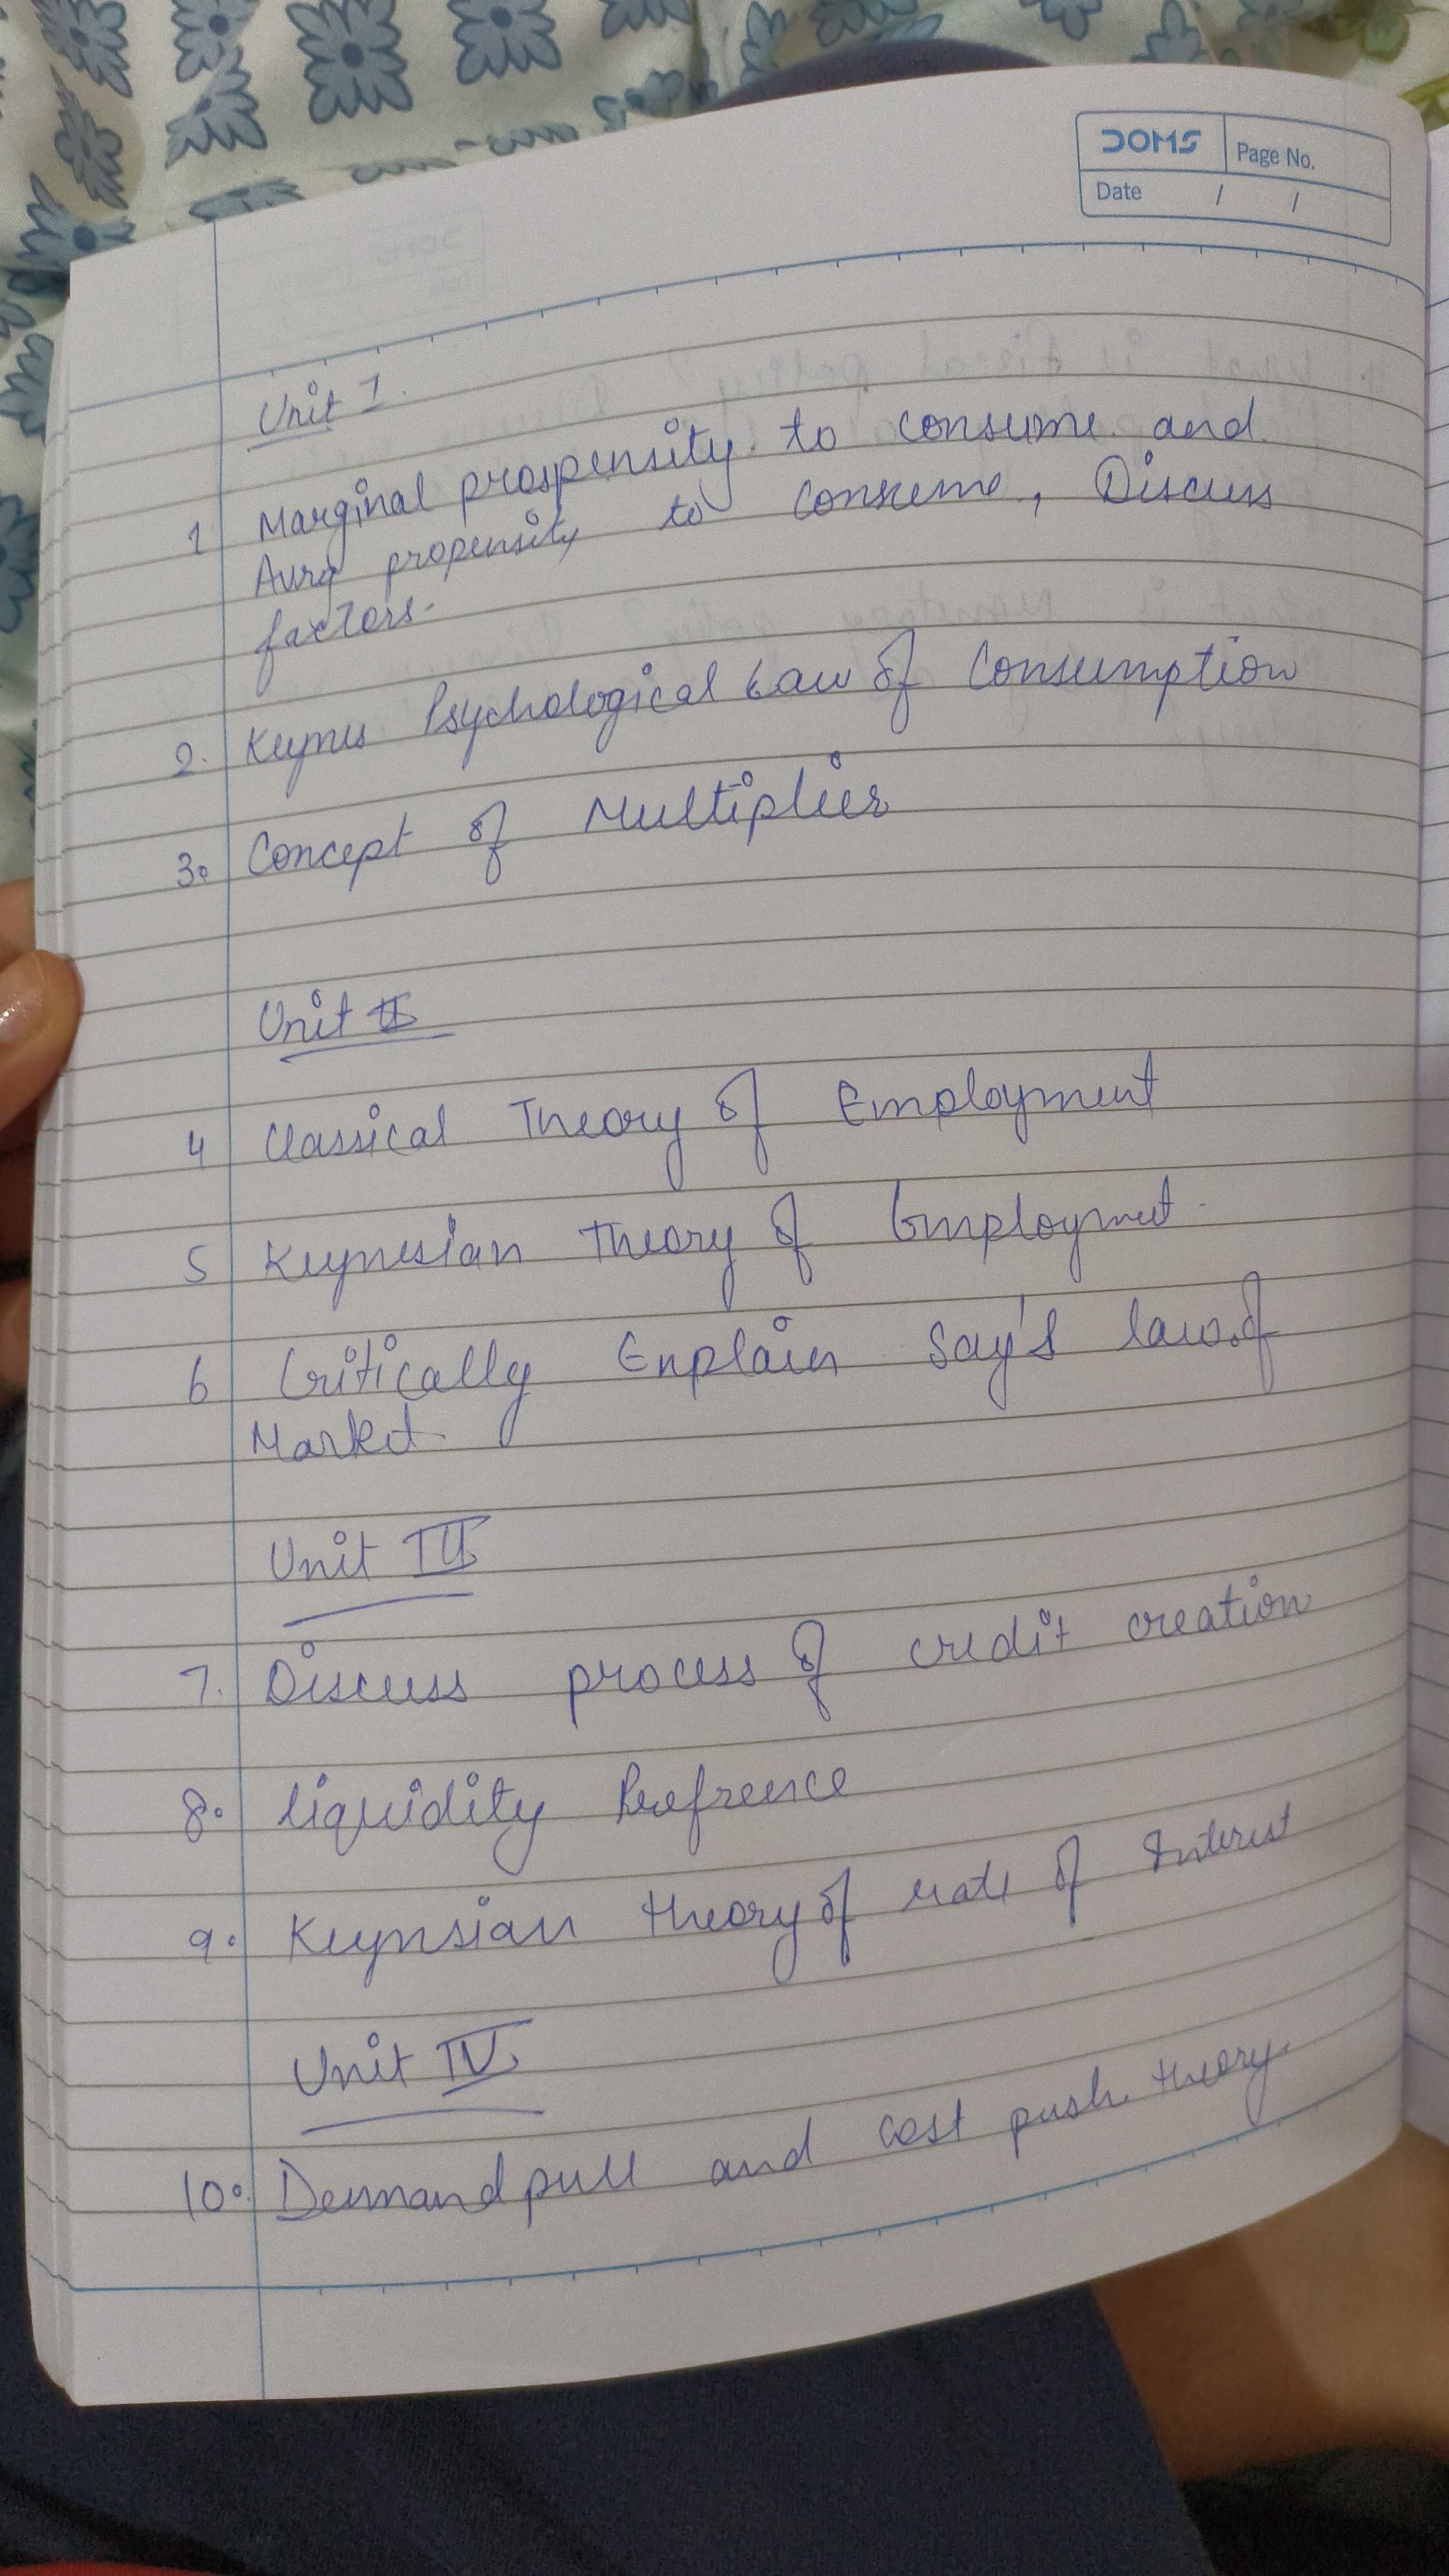 DOMS
Page No.
Date / /
Unit I.
1 Marginal prospensity to consume and
Avrg propensity to consume, Discuss
factors.
2. Keynes Psychological Law of Consumption
3. Concept of Multiplier
Unit II
4 Classical Theory of Employment
5 Keynesian Theory of Employmet
6 Critically Explain Say's law of
Market.
Unit III
7. Discuss process of credit creation
8. liquidity Prefrence
9. Keynsian theory of rate of Interest
Unit IV
10. Demand pull and cost push theory